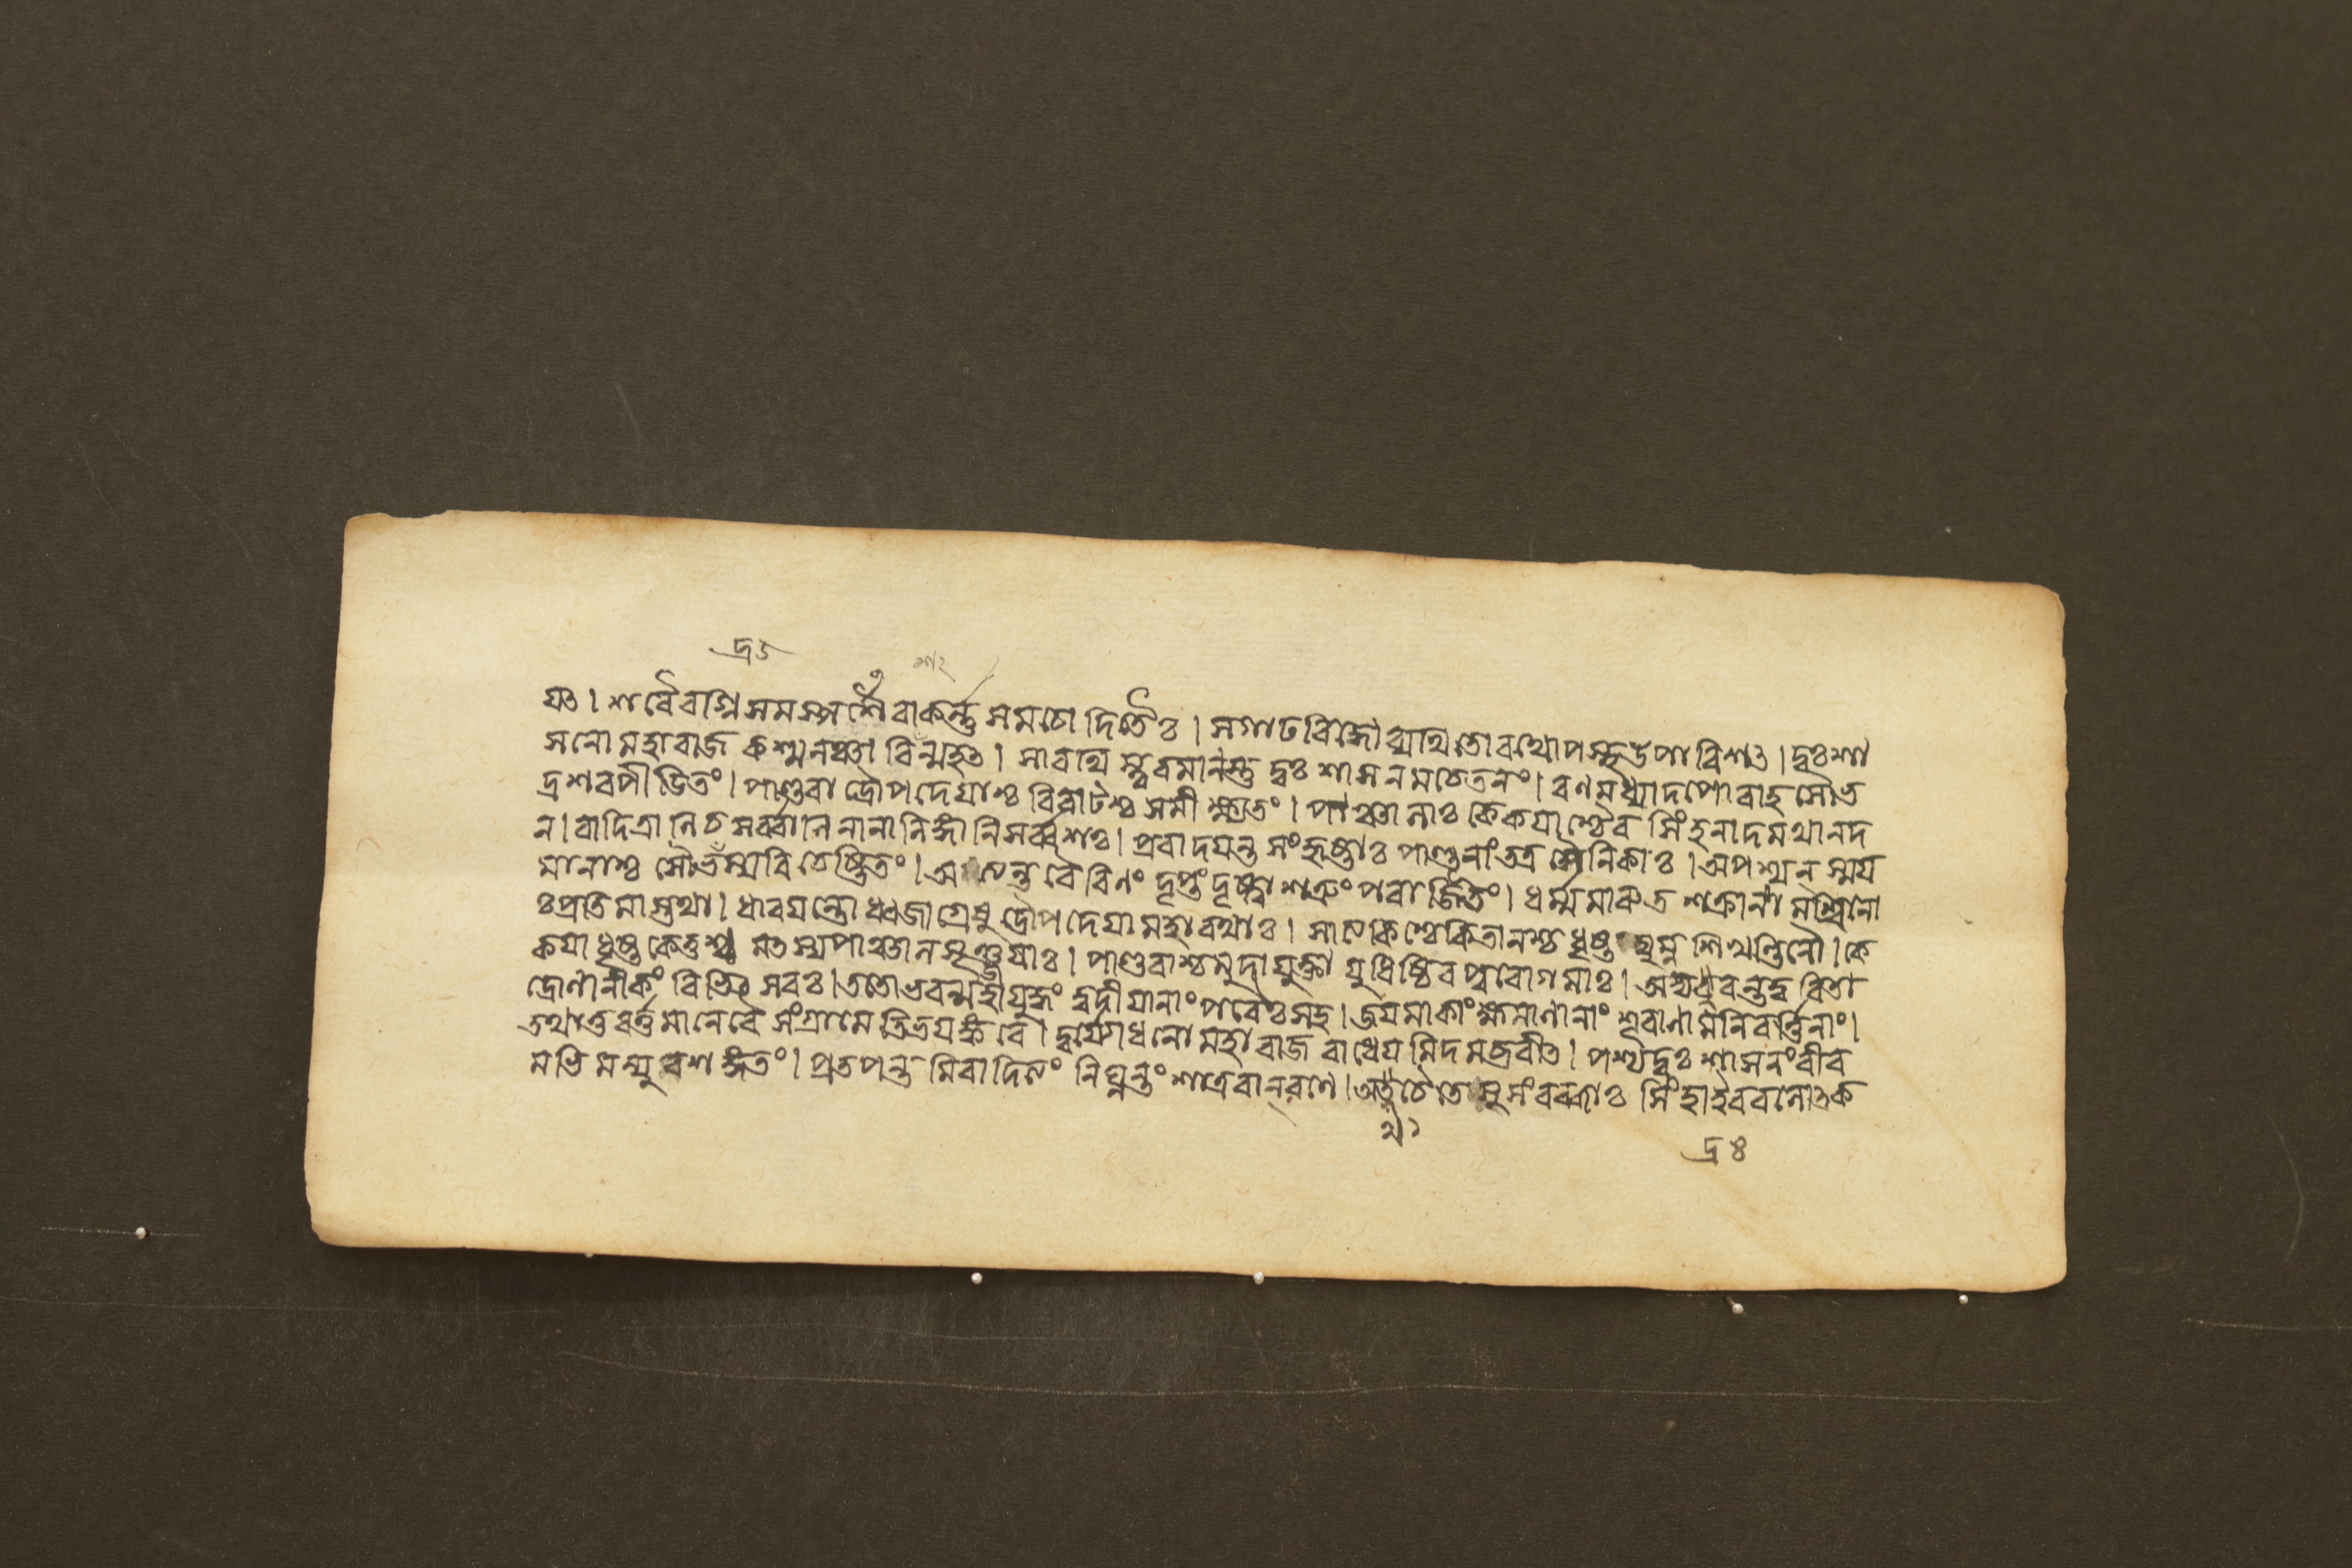 দ্র ৫
শ ২
য়ৎ । শরৈরগ্নিসমস্পর্শৈরাকর্ন্নসমচোদিতৈঃ । স গাঢবিদ্ধো ব্যথিতো রথোপস্থউপাবিশৎ । দুঃশা
সনো মহারাজ কশ্মলঞ্চাবিন্মহৎ । সারথিস্ত্বরমানস্তু দুঃশাসনমচেতনং । রণমধ্যাদপোবাহ সৌভ
দ্রশরপীডিতং । পাণ্ডবা দ্রৌপদেয়াশ্চ বিরাটশ্চ সমীক্ষ্যতং । পাঞ্চালাঃ কেকয়াশ্চৈব সিংহনাদমথানদ
ন । বাদিত্রানি চ সর্ব্বানি নানালিঙ্গানি সর্ব্বশঃ । প্রবাদয়ন্ত সংহৃষ্টাঃ পাণ্ডূনাং তত্র সৈনিকাঃ । অপশ্যন্ স্ময়
মানাশ্চ সৌভস্য বিচেষ্টিতং । অত্যন্তবৈরিণং দৃপ্তং দৃষ্ট্বা শত্রুং পরাজিতং । ধর্ম্মমারুতশক্রানামশ্বিনো
ঃ প্রতিমাস্তথা । ধারয়ন্তো ধ্বজাগ্রেষু দ্রৌপদেয়া মহারথাঃ । সাত্যকিশ্চেকিতানশ্চ ধৃষ্টদ্যুম্নশিখণ্ডিনৌ । কে
কয়া ধৃষ্টকেতুশ্চ মৎস্যপাঞ্চালসৃঞ্জয়াঃ । পাণ্ডবাশ্চ মুদা যুক্তা যুধিষ্ঠিরপুরোগমাঃ । অভ্যদ্রবন্ত ত্বরিতা
দ্রোণানীকং বিভিৎসবঃ । ততোভবন্মহাযুদ্ধং ত্বদীয়ানাং পরৈঃ সহ । জয়মাকাংক্ষমাণানাং শূরাণামনিবর্ত্তিনাং ।
তথা তু বর্ত্তমানে বৈ সংগ্রামেতিভয়ঙ্করে । দুর্য্যোধনো মহারাজ রাধেয়মিদমব্রবীৎ । পশ্য দুঃশাসনং বীর
মভিমন্যুবশঙ্গতং । প্রতপন্তমিবাদিত্যং নিঘ্নন্তং শাত্রবান্ রণে । অথ চৈতে সুসংরব্ধাঃ সিংহা ইব বলোৎক
থ ১
দ্র ৪